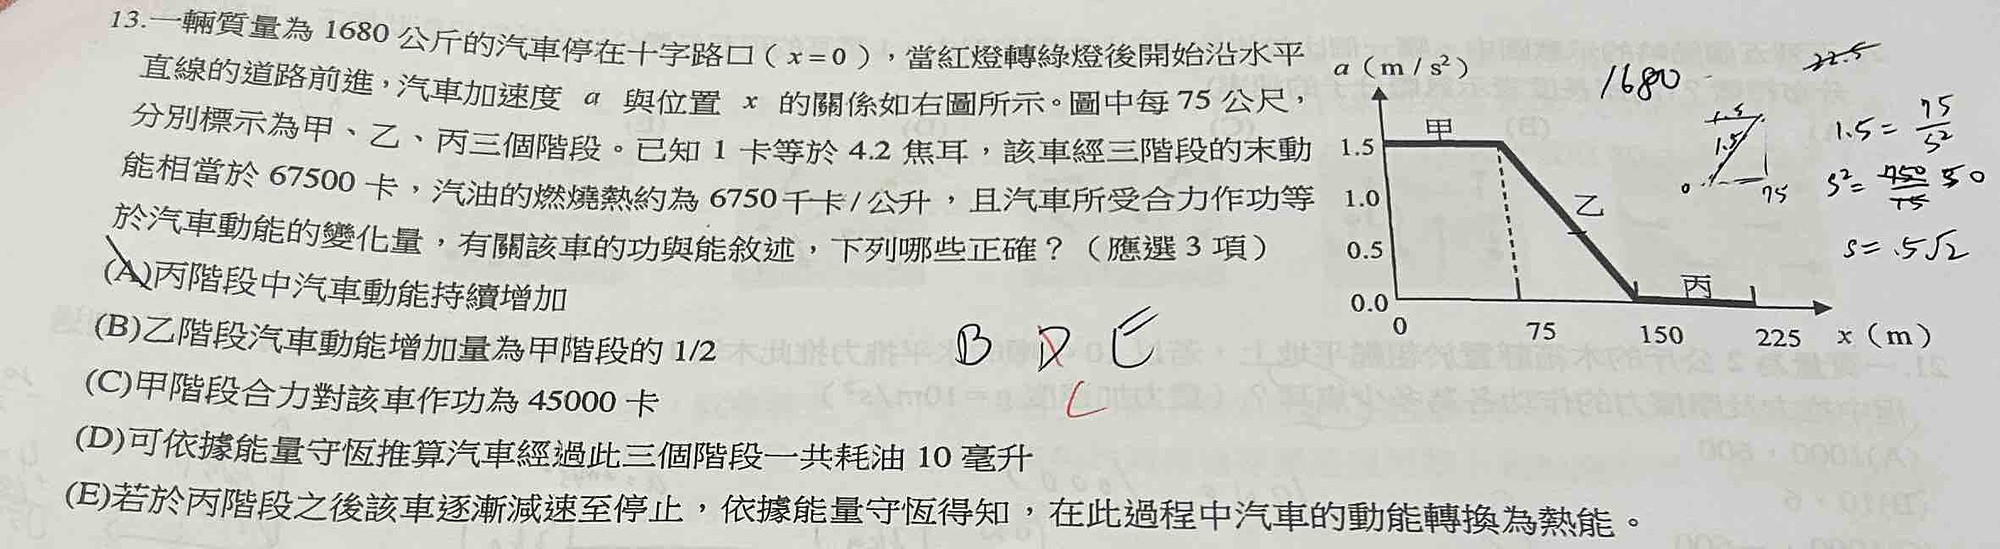 13.一輛質量為 1680 公斤的汽車停在十字路口（x=0），當紅燈轉綠燈後開始沿水平
直線的道路前進，汽車加速度 a 與位置 x 的關係如右圖所示。圖中每 75 公尺，
分別標示為甲、乙、丙三個階段。已知 1 卡等於 4.2 焦耳，該車經三階段的末動
能相當於 67500 卡，汽油的燃燒熱約為 6750 千卡/公升，且汽車所受合力作功等
於汽車動能的變化量，有關該車的功與能敘述，下列哪些正確？（應選 3 項）
(A)丙階段中汽車動能持續增加
(B)乙階段汽車動能增加量為甲階段的 1/2
(C)甲階段合力對該車作功為 45000 卡
(D)可依據能量守恆推算汽車經過此三個階段一共耗油 10 毫升
(E)若於丙階段之後該車逐漸減速至停止，依據能量守恆得知，在此過程中汽車的動能轉換為熱能。
B D E
C
a（m / s²）
甲
1.5
1.0
乙
0.5
丙
0.0
0 75 150 225 x（m）
1680
22.5
1.5
0 75
1.5 = 75/s²
s² = 750/15 50
s = 5√2